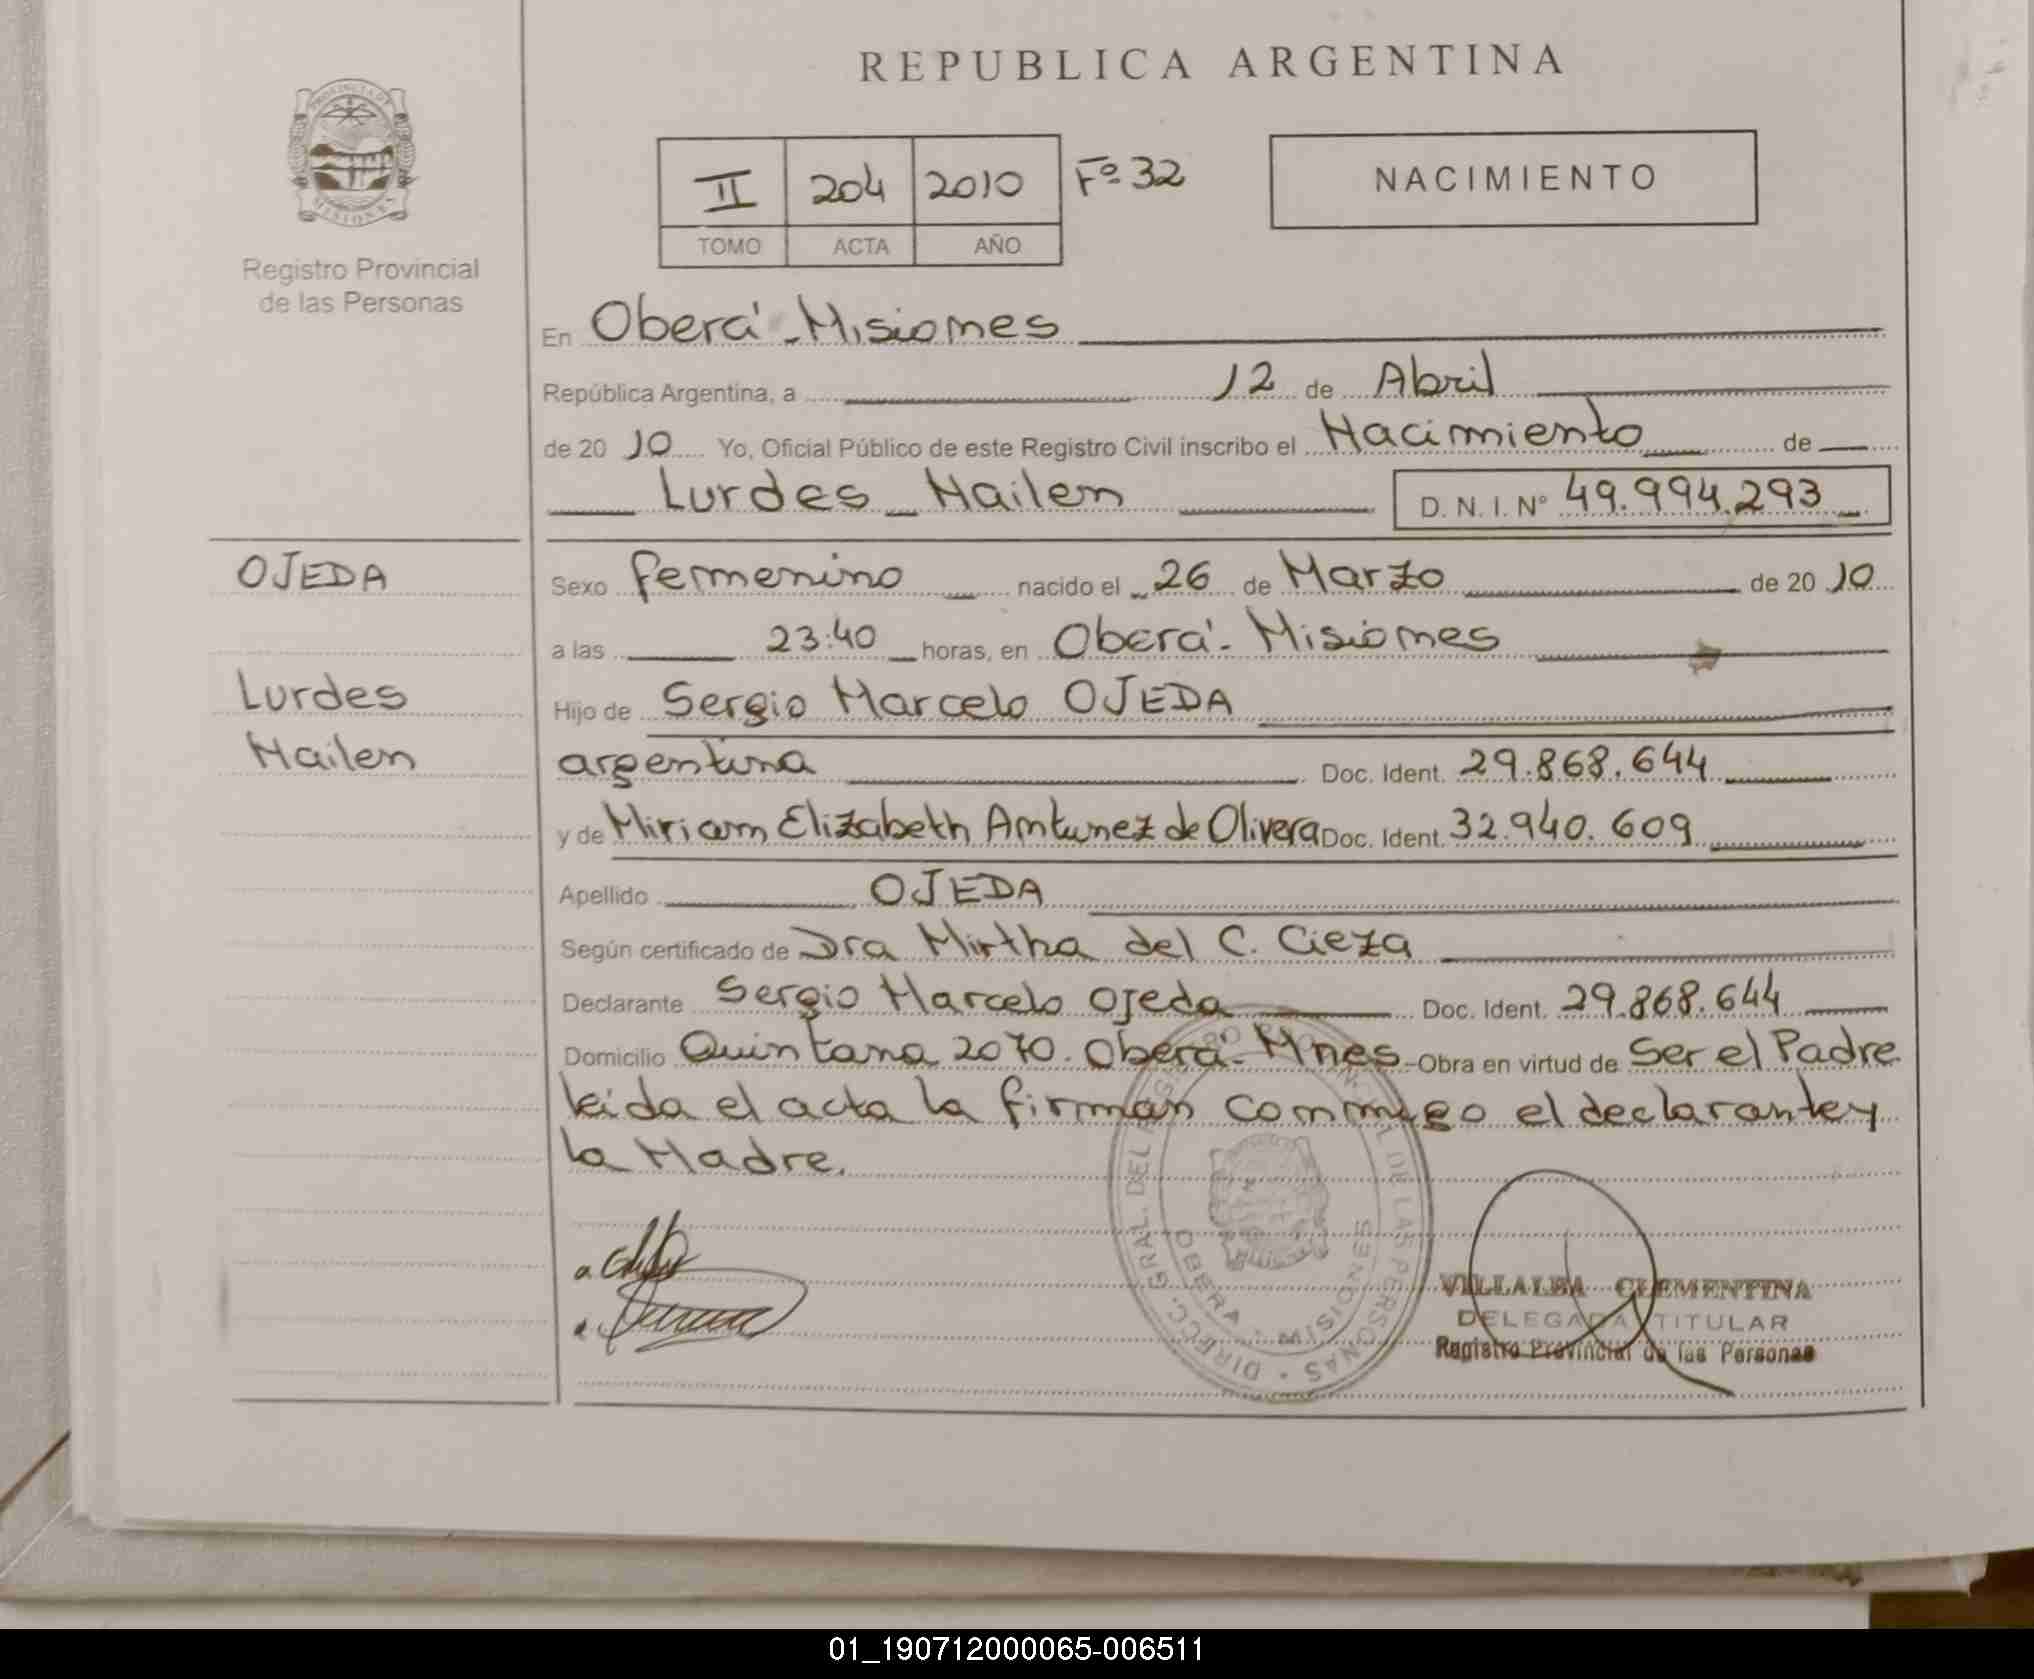 REPUBLICA ARGENTINA
PROVINCIA DE
MISIONES
Registro Provincial
de las Personas
II 204 2010 Fº 32
TOMO ACTA AÑO
NACIMIENTO
En Oberá - Misiones
República Argentina, a 12 de Abril
de 20 10 Yo, Oficial Público de este Registro Civil inscribo el Nacimiento de
Lurdes Nailen D. N. I. Nº 49.994.293
OJEDA
Lurdes
Nailen
Sexo femenino nacido el 26 de Marzo de 20 10
a las 23:40 horas, en Oberá - Misiones
Hijo de Sergio Marcelo OJEDA
argentina Doc. Ident. 29.868.644
y de Miriam Elizabeth Antunez de Olivera Doc. Ident. 32.940.609
Apellido OJEDA
Según certificado de Dra Mirtha del C. Cieza
Declarante Sergio Marcelo Ojeda Doc. Ident. 29.868.644
Domicilio Quintana 2070. Oberá - Mnes - Obra en virtud de Ser el Padre
leida el acta la firman conmigo el declarante y
la Madre.
DIRECC. GRAL. DEL REGISTRO PROVINCIAL DE LAS PERSONAS
OBERA - MISIONES
VILLALBA CLEMENTINA
DELEGADA TITULAR
Registro Provincial de las Personas
01_190712000065-006511